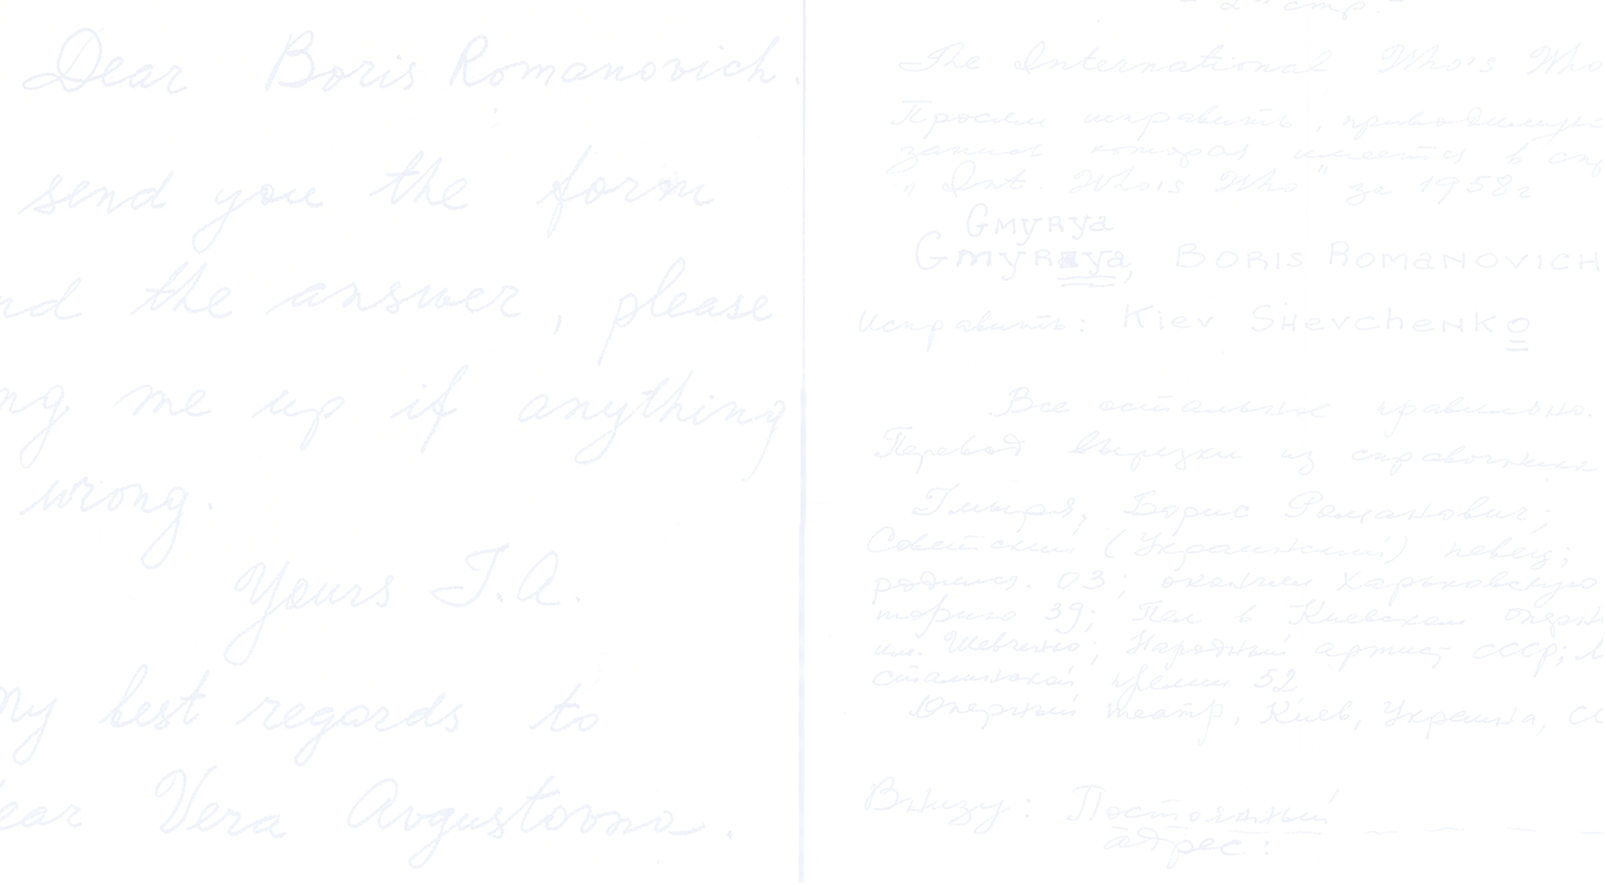 Dear Boris Romanovich.
send you the form
nd the answer, please
ng me up if anything
wrong.
Yours T.A.
My best regards to
ear Vera Avgustovna.
2ая стр.
The International Who's Who
Просим исправить,
запись которая имеется в
"Int. Who's Who" за 1958г
Gmyrya
Gmyrya, Boris Romanovich
Исправить: Kiev Shevchenko
Все остальное правильно.
Перевод вырезки из справочника
Гмыря, Борис Романович;
Советский (Украинский) певец;
родился. 03; окончил Харьковскую
торию 39; Пел в Киевском оперн
им. Шевченко; Народный артист СССР;
сталинской премии 52
Оперный театр, Киев, Украина, СС
Внизу: Постоянный
адрес: